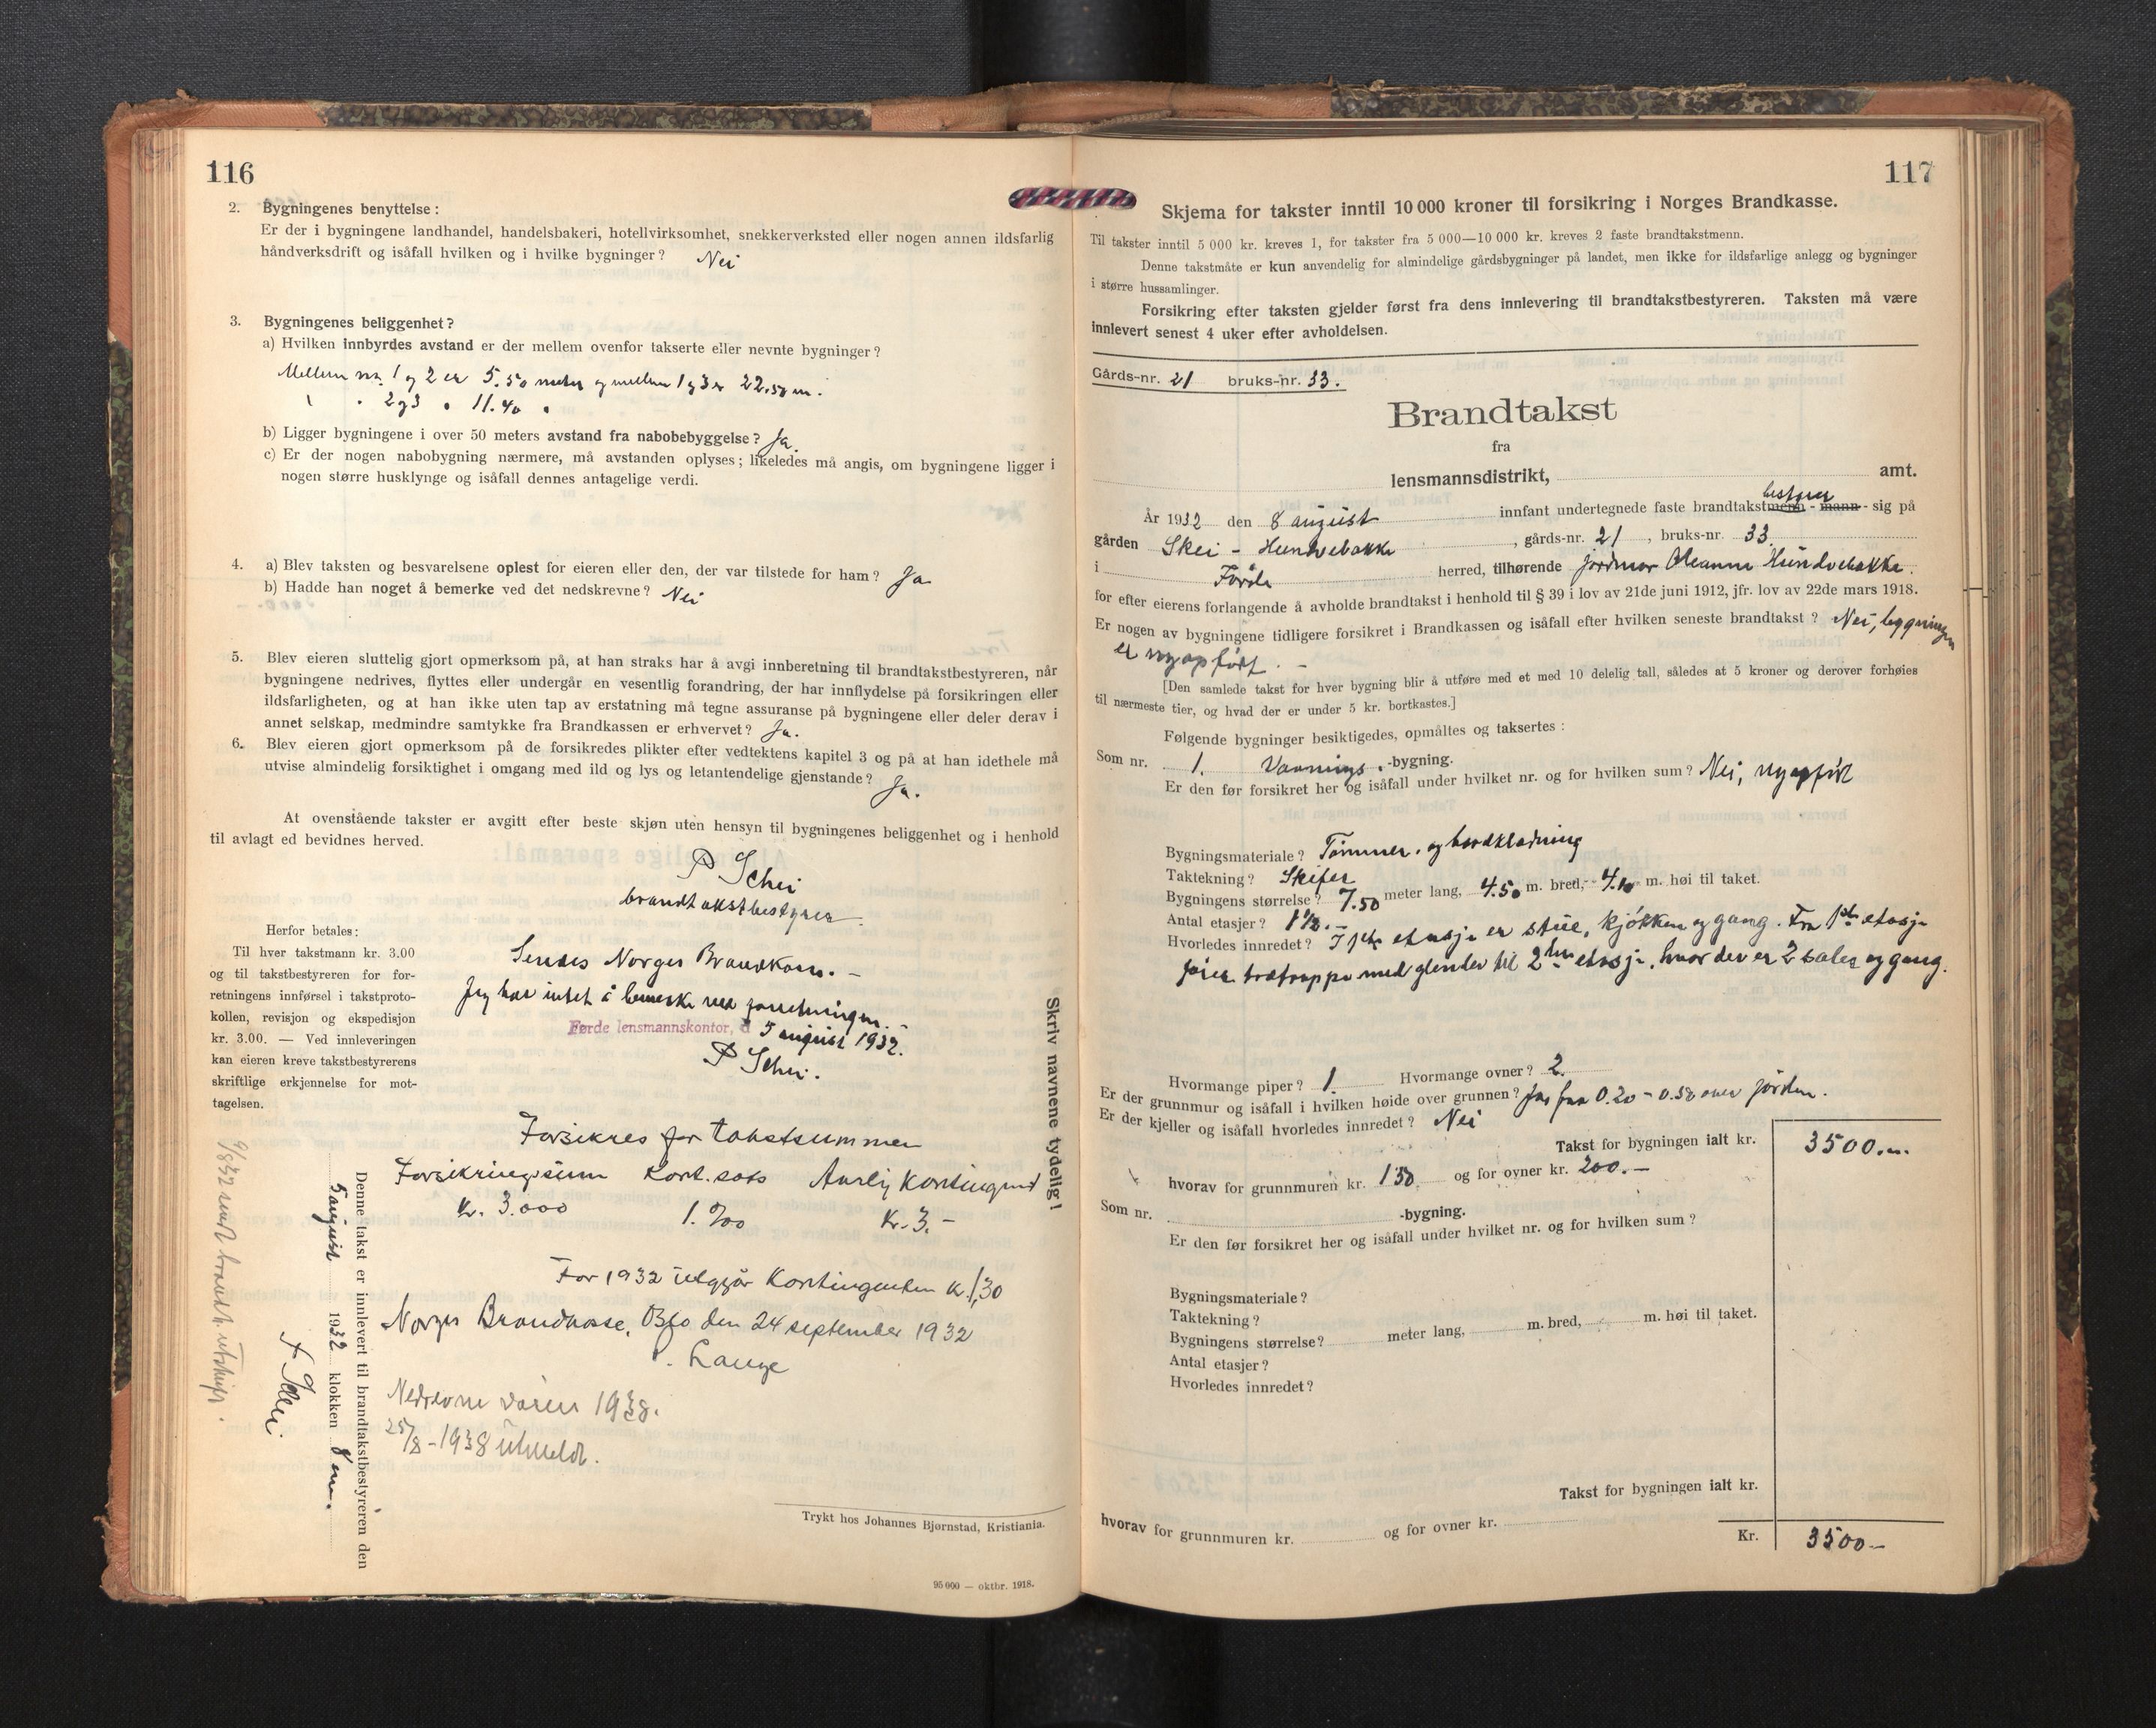 116
2. Bygningenes benyttelse:
Er der i bygningene landhandel, handelsbakeri, hotellvirksomhet, snekkerverksted eller nogen annen ildsfarlig
håndverksdrift og isåfall hvilken og i hvilke bygninger? Nei
3. Bygningenes beliggenhet?
a) Hvilken innbyrdes avstand er der mellem ovenfor takserte eller nevnte bygninger?
Mellem nr. 1 og 2 er 5.50 meter og mellem 1 og 3 er 22.50 m.
" " 2 og 3 " 11.40 "
b) Ligger bygningene i over 50 meters avstand fra nabobebyggelse? Ja.
c) Er der nogen nabobygning nærmere, må avstanden oplyses; likeledes må angis, om bygningene ligger i
nogen større husklynge og isåfall dennes antagelige verdi.
4. a) Blev taksten og besvarelsene oplest for eieren eller den, der var tilstede for ham? Ja
b) Hadde han noget å bemerke ved det nedskrevne? Nei
5. Blev eieren sluttelig gjort opmerksom på, at han straks har å avgi innberetning til brandtakstbestyreren, når
bygningene nedrives, flyttes eller undergår en vesentlig forandring, der har innflydelse på forsikringen eller
ildsfarligheten, og at han ikke uten tap av erstatning må tegne assuranse på bygningene eller deler derav i
annet selskap, medmindre samtykke fra Brandkassen er erhvervet? Ja.
6. Blev eieren gjort opmerksom på de forsikredes plikter efter vedtektens kapitel 3 og på at han idethele må
utvise almindelig forsiktighet i omgang med ild og lys og letantendelige gjenstande? Ja.
At ovenstående takster er avgitt efter beste skjøn uten hensyn til bygningenes beliggenhet og i henhold
til avlagt ed bevidnes herved.
P Schei
brandtakstbestyrer
Herfor betales:
Til hver takstmann kr. 3.00
og til takstbestyreren for for-
retningens innførsel i takstproto-
kollen, revisjon og ekspedisjon
kr. 3.00. — Ved innleveringen
kan eieren kreve takstbestyrerens
skriftlige erkjennelse for mot-
tagelsen.
Sendes Norges Brandkasse. –
Jeg har intet å bemerke ved forretningen. –
Førde lensmannskontor, d 5 august 1932.
P Schei.
Skriv navnene tydelig!
Forsikres for takstsummen
Forsikringssum Kont.sats Aarlig kontingent
Kr. 3.000 1. ‰ Kr. 3.–
For 1932 utgjør Kontingenten kr. 1,30
Norges Brandkasse, Oslo den 24 september 1932
Lange
Nedrevne våren 1938.
25/8-1938 utmeldt.
Denne takst er innlevert til brandtakstbestyreren den
5 august 1932 klokken 8 em.
P Schei
9/8 32 sendt brandk. utskrift.
Trykt hos Johannes Bjørnstad, Kristiania.
95 000 — oktbr. 1918.
117
Skjema for takster inntil 10 000 kroner til forsikring i Norges Brandkasse.
Til takster inntil 5 000 kr. kreves 1, for takster fra 5 000—10 000 kr. kreves 2 faste brandtakstmenn.
Denne takstmåte er kun anvendelig for almindelige gårdsbygninger på landet, men ikke for ildsfarlige anlegg og bygninger
i større hussamlinger.
Forsikring efter taksten gjelder først fra dens innlevering til brandtakstbestyreren. Taksten må være
innlevert senest 4 uker efter avholdelsen.
Gårds-nr. 21 bruks-nr. 33.
Brandtakst
fra
lensmannsdistrikt, amt.
År 1932 den 8 august innfant undertegnede faste brandtakstmenn - mann - bestyrer sig på
gården Skei - Hundvebakke, gårds-nr. 21, bruks-nr. 33.
i Førde herred, tilhørende jordmor Oleanna Hundvebakke.
for efter eierens forlangende å avholde brandtakst i henhold til § 39 i lov av 21de juni 1912, jfr. lov av 22de mars 1918.
Er nogen av bygningene tidligere forsikret i Brandkassen og isåfall efter hvilken seneste brandtakst? Nei, bygningen
er nyopført. –
[Den samlede takst for hver bygning blir å utføre med et med 10 delelig tall, således at 5 kroner og derover forhøies
til nærmeste tier, og hvad der er under 5 kr. bortkastes.]
Følgende bygninger besiktigedes, opmåltes og taksertes:
Som nr. 1. Vaanings -bygning.
Er den før forsikret her og isåfall under hvilket nr. og for hvilken sum? Nei, nyopført
Bygningsmateriale? Tømmer og bordkledning
Taktekning? Skifer
Bygningens størrelse? 7.50 meter lang, 4.50 m. bred, 4.10 m. høi til taket.
Antal etasjer? 1½. –
Hvorledes innredet? I 1ste etasje er stue, kjøkken og gang. Fra 1ste etasje
fører trætrappe med glender til 2den etasje, hvor der er 2 saler og gang.
Hvormange piper? 1. Hvormange ovner? 2.
Er der grunnmur og isåfall i hvilken høide over grunnen? Ja, fra 0.20 - 0.50 over jorden.
Er der kjeller og isåfall hvorledes innredet? Nei
Takst for bygningen ialt kr. 3500.–
hvorav for grunnmuren kr. 150 og for ovner kr. 200.–
Som nr. -bygning.
Er den før forsikret her og isåfall under hvilket nr. og for hvilken sum?
Bygningsmateriale?
Taktekning?
Bygningens størrelse? meter lang, m. bred, m. høi til taket.
Antal etasjer?
Hvorledes innredet?
Takst for bygningen ialt kr.
hvorav for grunnmuren kr. og for ovner kr.
Kr. 3500–